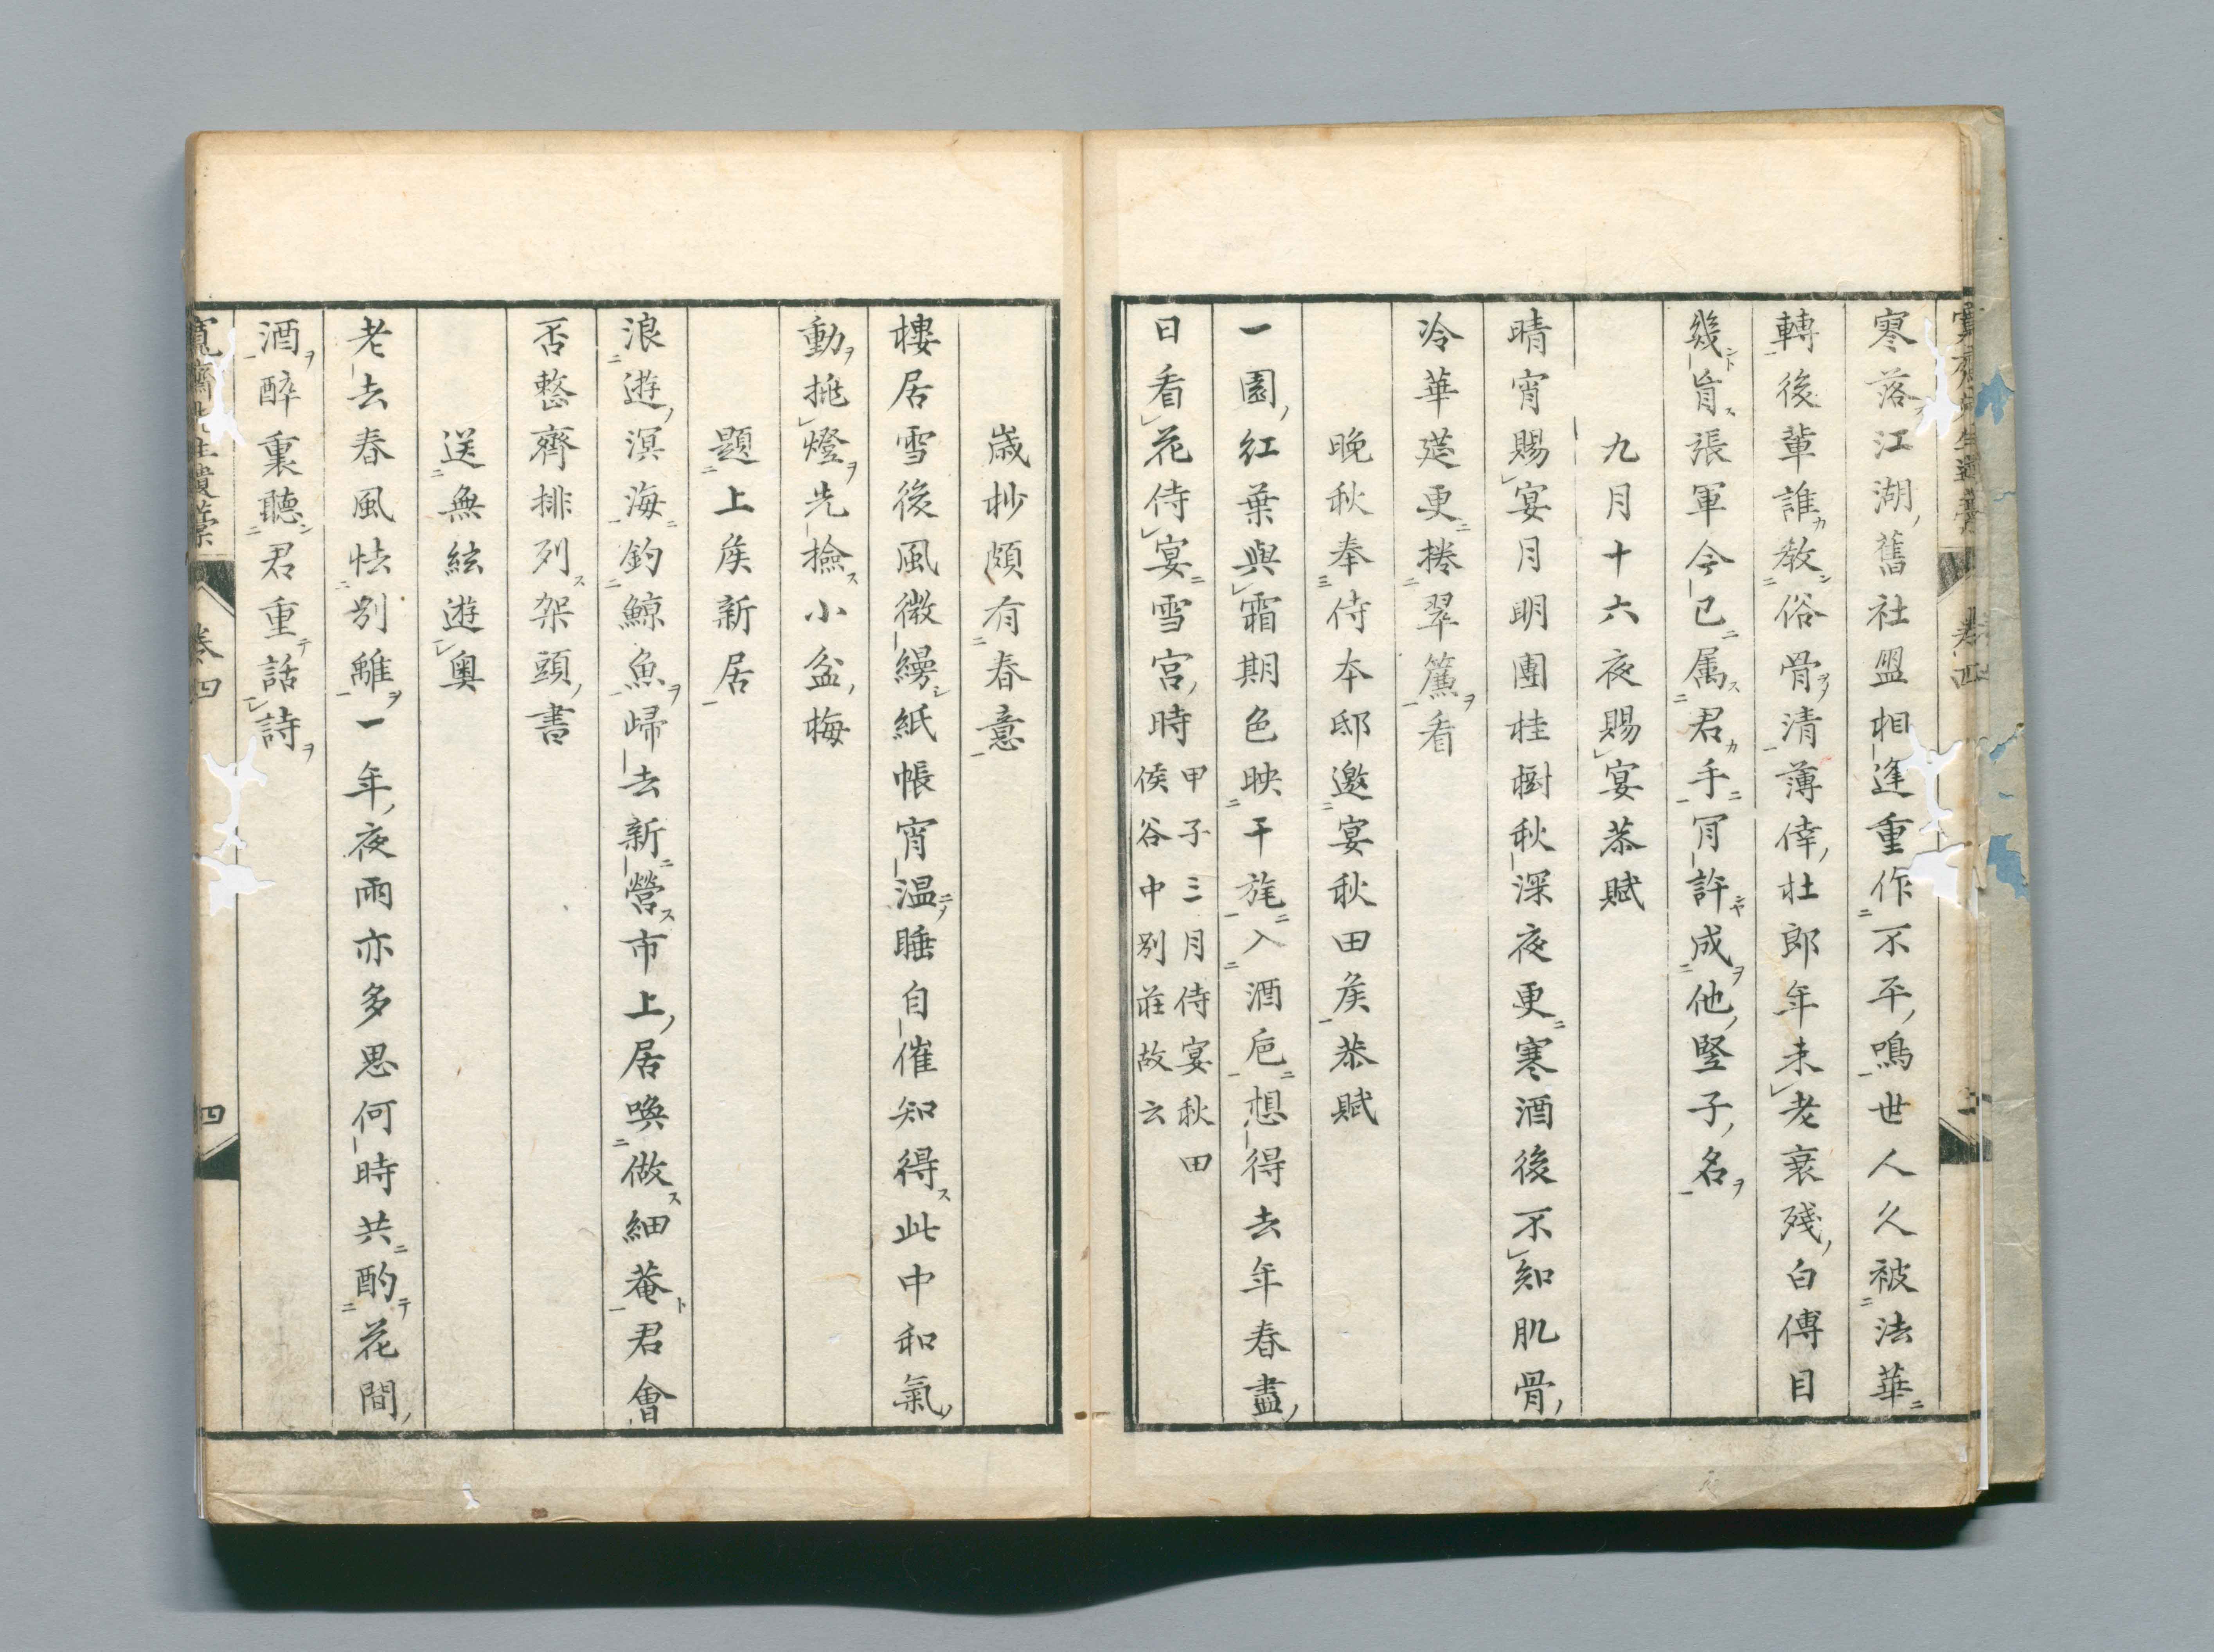 寒落江湖舊社盟相逢重作不平鳴世人久被法華
轉後輩誰教俗骨清薄倖杜郎年未老衰殘白傅目
幾盲張軍今已属君手肎許成他竪子名
九月十六夜賜宴恭賦
晴宵賜宴月明團桂樹秋深夜更寒酒後不知肌骨
冷華莚更捲翠簾看
晩秋奉侍本邸邀宴秋田矦恭賦
一園紅葉與霜期色映干旄入酒巵想得去年春盡
日看花侍宴雪宮時
甲子三月侍宴秋田
侯谷中別莊故云
歳杪頗有春意
樓居雪後風微縵紙帳宵温睡自催知得此中和氣
動挑燈先撿小盆梅
題上矦新居
浪遊溟海釣鯨魚歸去新營市上居喚做細菴君會
否整齊排列架頭書
送無絃遊奥
老去春風怯別離一年夜雨亦多思何時共酌花間
酒醉裏聽君重話詩
卷四
四